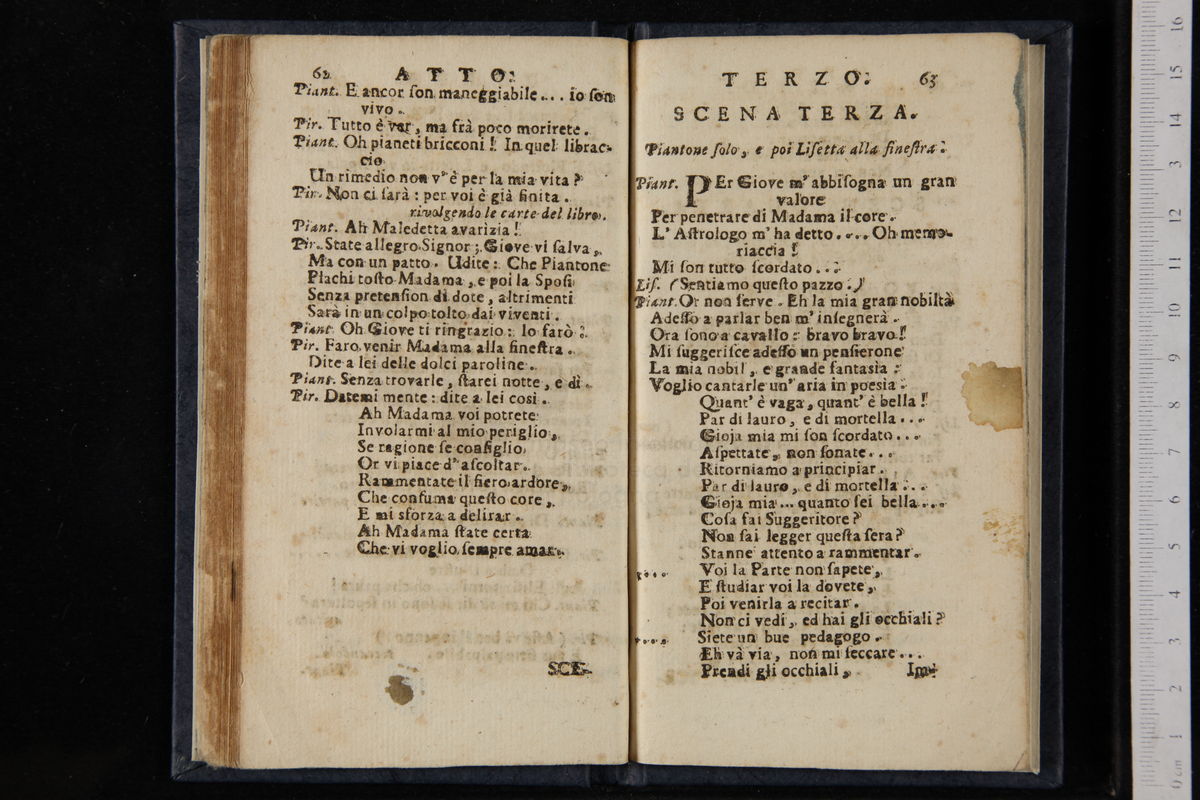 62 ATTO.
Piant. E ancor ſon maneggiabile... io ſon
vivo.
Pir. Tutto è ver, ma frà poco morirete.
Piant. Oh pianeti bricconi! In quel librac-
cio
Un rimedio non v'è per la mia vita?
Pir. Non ci ſarà: per voi è già finita.
rivolgendo le carte del libro.
Piant. Ah Maledetta avarizia!
Pir. State allegro Signor; Giove vi ſalva,
Ma con un patto. Udite: Che Piantone
Plachi toſto Madama, e poi la Spoſi
Senza pretenſion di dote, altrimenti
Sarà in un colpo tolto dai viventi.
Piant. Oh Giove ti ringrazio: lo farò:
Pir. Faro venir Madama alla fineſtra.
Dite a lei delle dolci paroline.
Piant. Senza trovarle, ſtarei notte, e dì.
Pir. Datemi mente: dite a lei cosi.
Ah Madama voi potrete
Involarmi al mio periglio,
Se ragione ſe conſiglio
Or vi piace d'aſcoltar.
Rammentate il fiero ardore,
Che conſuma queſto core,
E mi sforza a delirar.
Ah Madama ſtate certa
Che vi voglio ſempre amar.
SCE-
TERZO. 63
SCENA TERZA.
Piantone ſolo, e poi Liſetta alla fineſtra.
Piant. PEr Giove m'abbiſogna un gran
valore
Per penetrare di Madama il core.
L'Aſtrologo m'ha detto.... Oh memo-
riaccia!
Mi ſon tutto ſcordato...
Liſ. (Sentiamo queſto pazzo.)
Piant. Or non ſerve. Eh la mia gran nobiltà
Adeſſo a parlar ben m'inſegnerà.
Ora ſono a cavallo: bravo bravo!
Mi ſuggeriſce adeſſo un penſierone
La mia nobil, e grande fantasìa:
Voglio cantarle un'aria in poesìa:
Quant'è vaga, quant'è bella!
Par di lauro, e di mortella...
Gioja mia mi ſon ſcordato...
Aſpettate, non ſonate...
Ritorniamo a principiar.
Par di lauro, e di mortella...
Gioja mia... quanto ſei bella...
Coſa fai Suggeritore?
Non ſai legger queſta ſera?
Stanne attento a rammentar.
.... Voi la Parte non ſapete,
E ſtudiar voi la dovete,
Poi venirla a recitar.
Non ci vedi, ed hai gli occhiali?
.... Siete un bue pedagogo.
Eh và via, non mi ſeccare...
Prendi gli occhiali, Im-